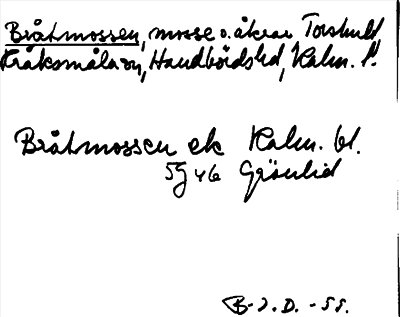 Bråtmossen, mosse o. åkrar Torshult,
Kråksmåla sn, Handbörds hd, Kalm. l.
Bråtmossen ek Kalm. bl.
5g 46 Grönlid
B-J.D. -55.